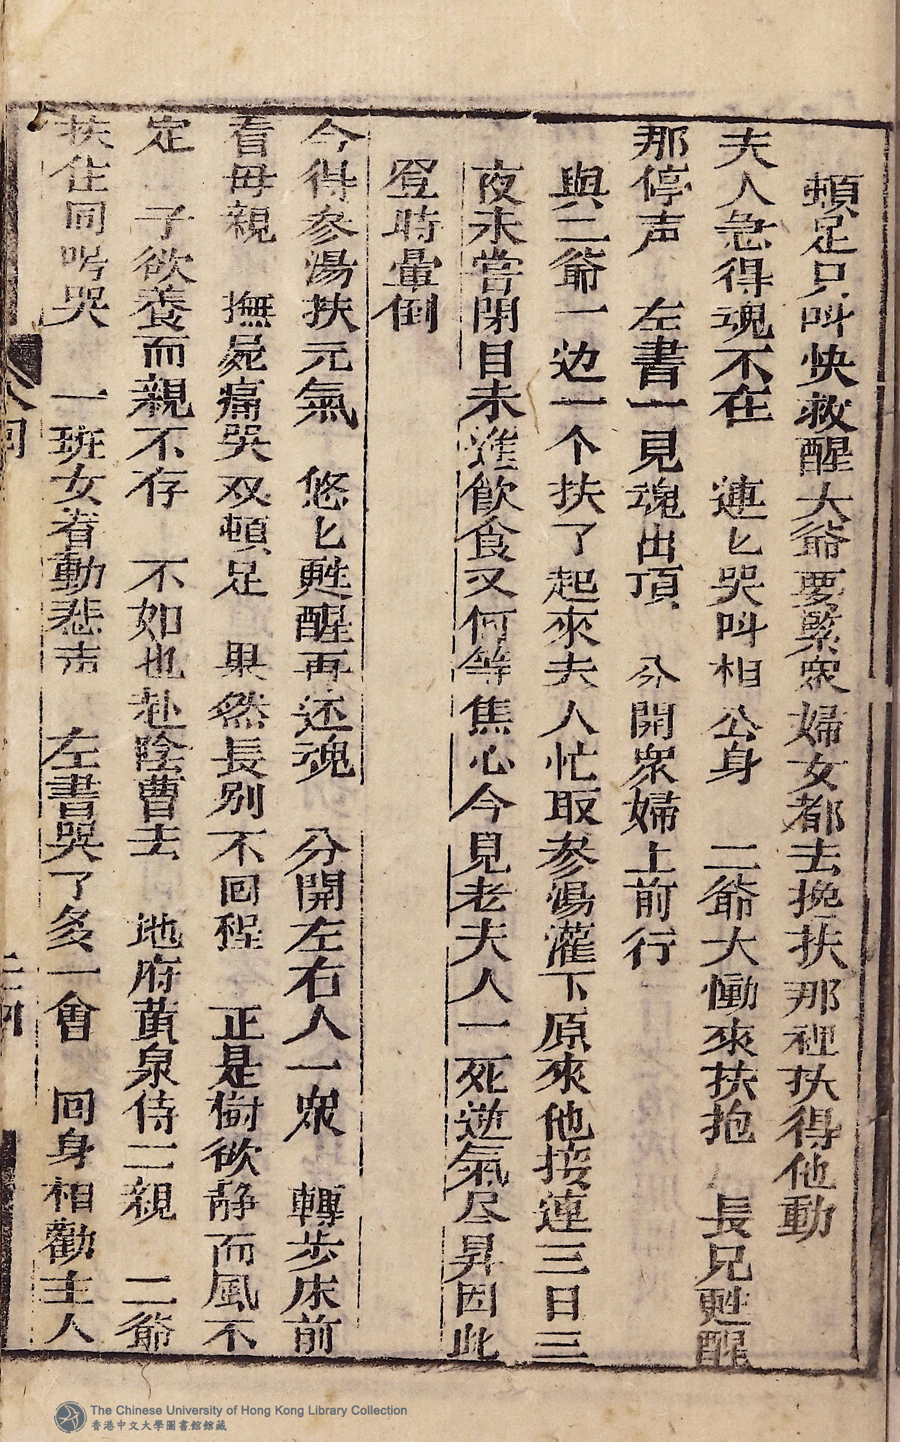 頓足只叫快救醒大爺要緊衆婦女都去挽扶那裡扶得他動
夫人急得魂不在　連匕哭叫相公身　二爺大慟來扶抱　長兄甦醒
那停声　左書一見魂出頂　分開衆婦上前行
與二爺一边一个扶了起來夫人忙取参湯灌下原來他接連三日三
夜未嘗閉目未進飲食又何等焦心今見老夫人一死逆氣尽昇因此
登時暈倒
今得参湯扶元氣　悠匕甦醒再还魂　分開左右人一衆　轉步床前
看母親　撫屍痛哭双頓足　果然長別不回程　正是樹欲静而風不
定　子欲養而親不存　不如也赴陰曹去　地府黄泉侍二親　二爺
扶住同啕哭　一班女眷動悲声　左書哭了多一會　回身相勸主人
回
The Chinese University of Hong Kong Library Collection
香港中文大學圖書館館藏